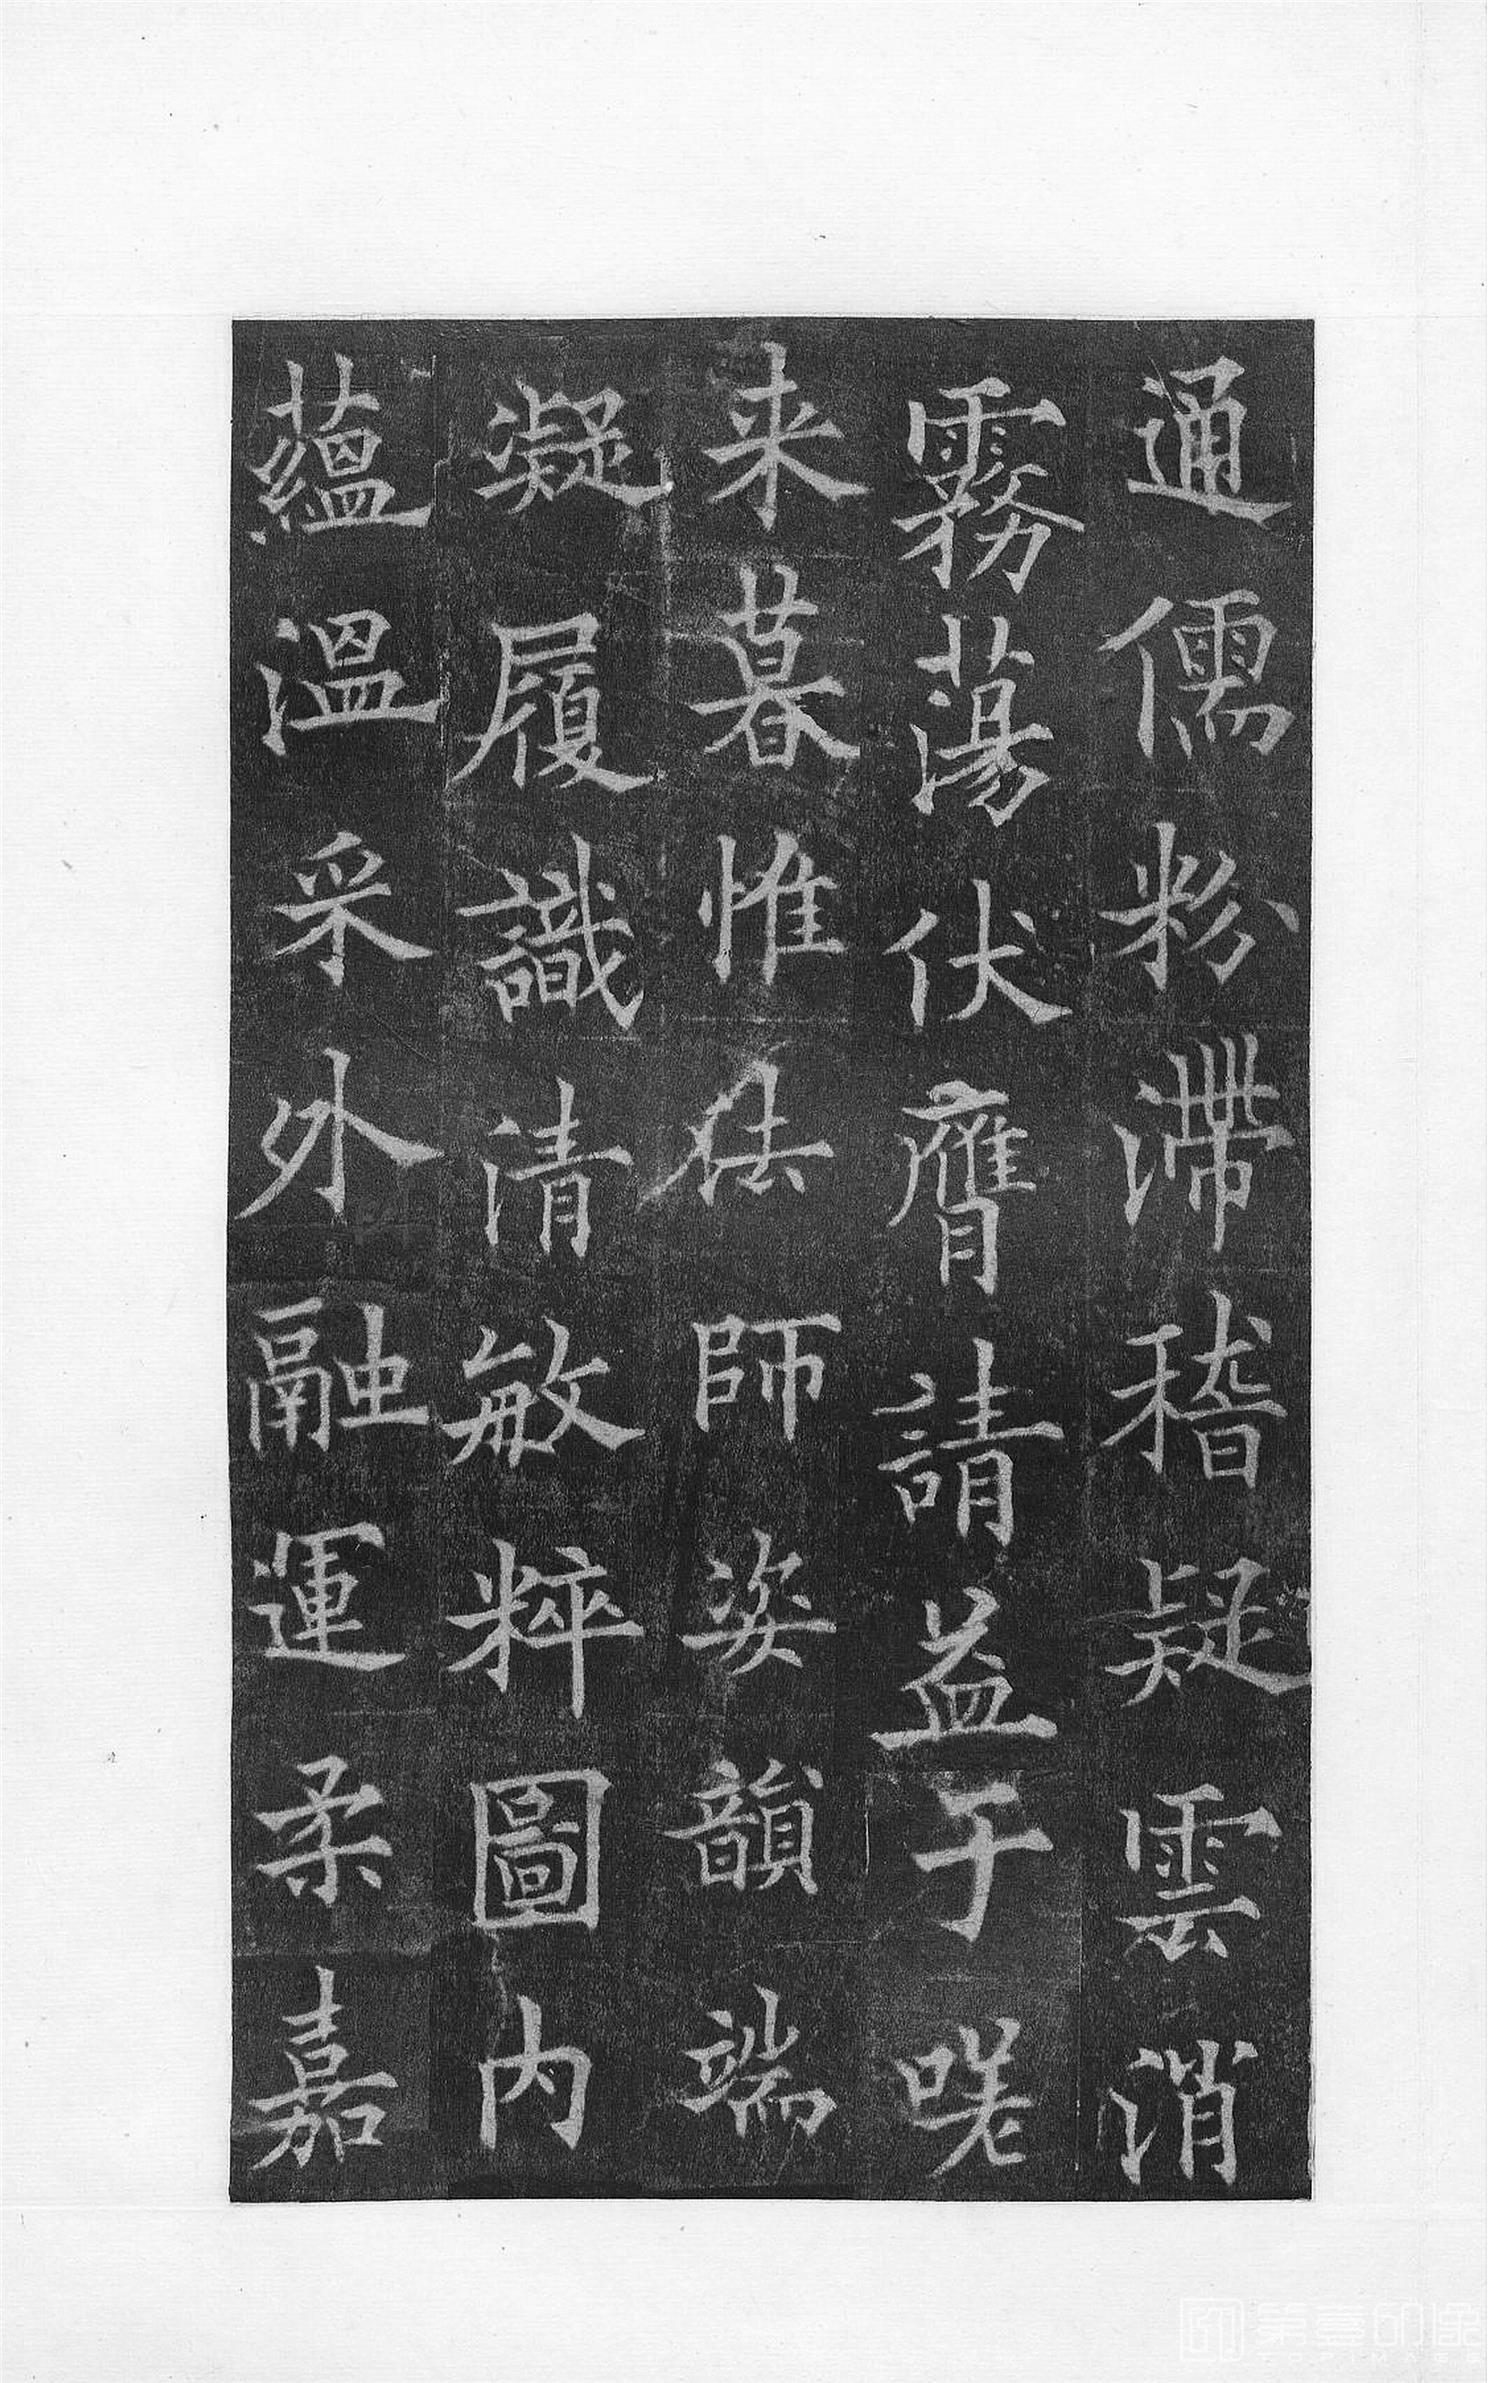 通儒粉滯稽疑雲消
霧蕩伏膺請益于嗟
来暮惟法師姿韻端
凝履識清敏粹圖内
蘊溫采外融運柔嘉
第壹印像
TOPIMAGE